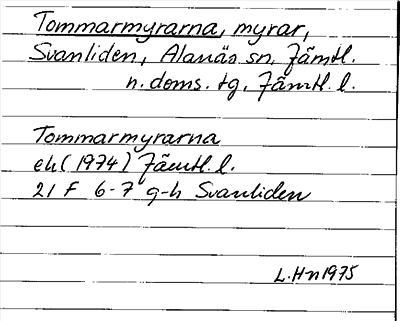 Tommarmyrarna, myrar,
Svanliden, Alanäs sn. Jämtl.
n. doms. tg, Jämtl. l.
Tommarmyrarna
ek (1974) Jämtl. l.
21 F 6-7 g-h Svanliden
L. Hn 1975